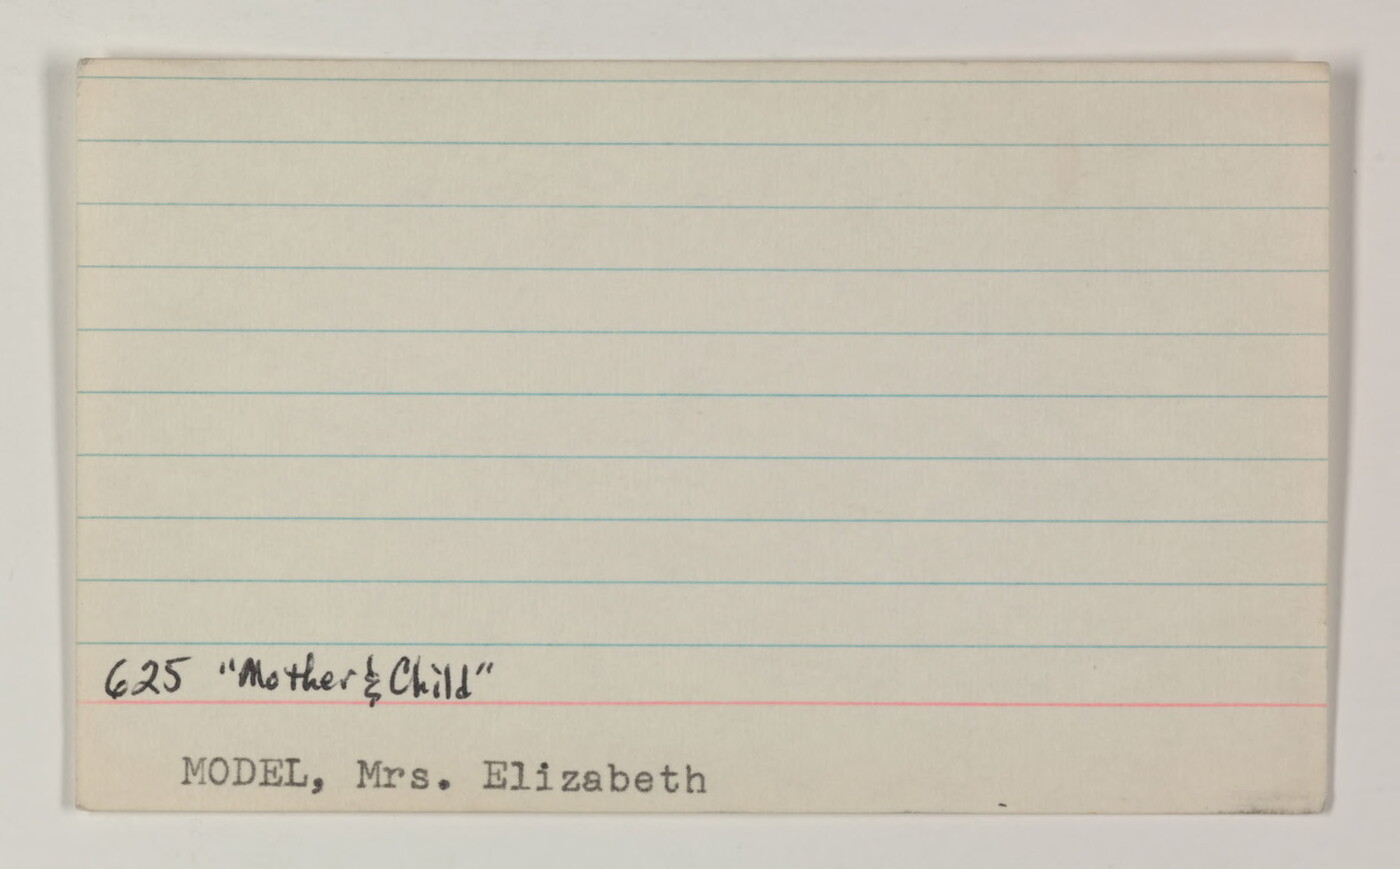 625 "Mother & Child"
MODEL, Mrs. Elizabeth